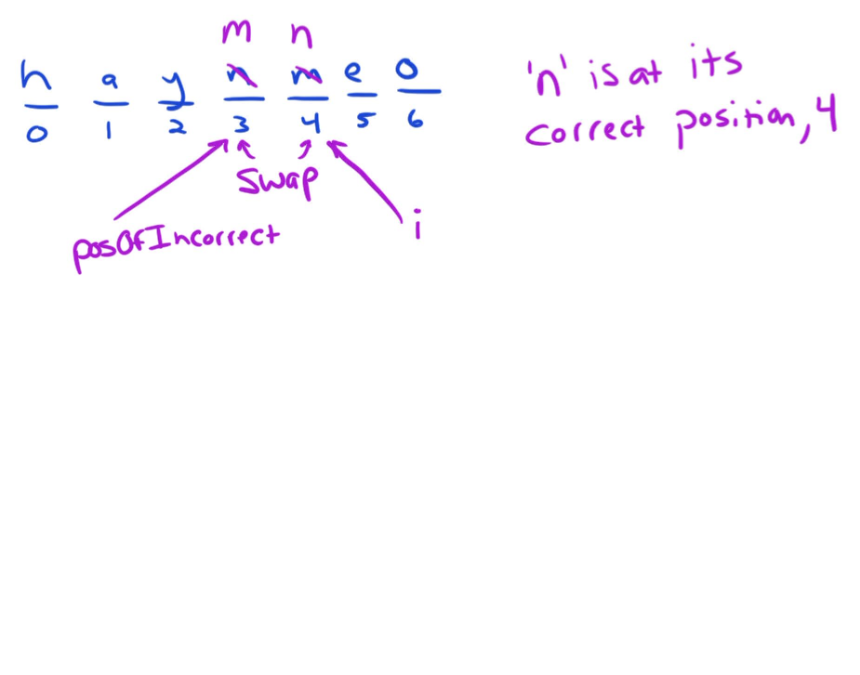 m n
h a y n m e o
0 1 2 3 4 5 6
swap
posOfIncorrect
i
'n' is at its
correct position, 4